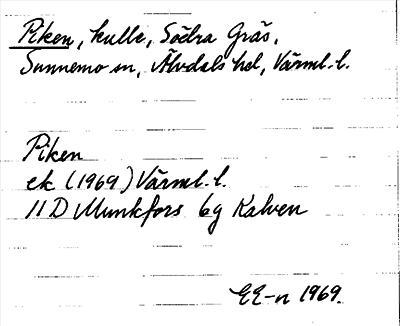 Piken, kulle, Södra Gräs,
Sunnemo sn, Älvdals hd, Värml. l.
Piken
ek (1969) Värml. l.
11 D Munkfors 6g Kalven
EE-n 1969.